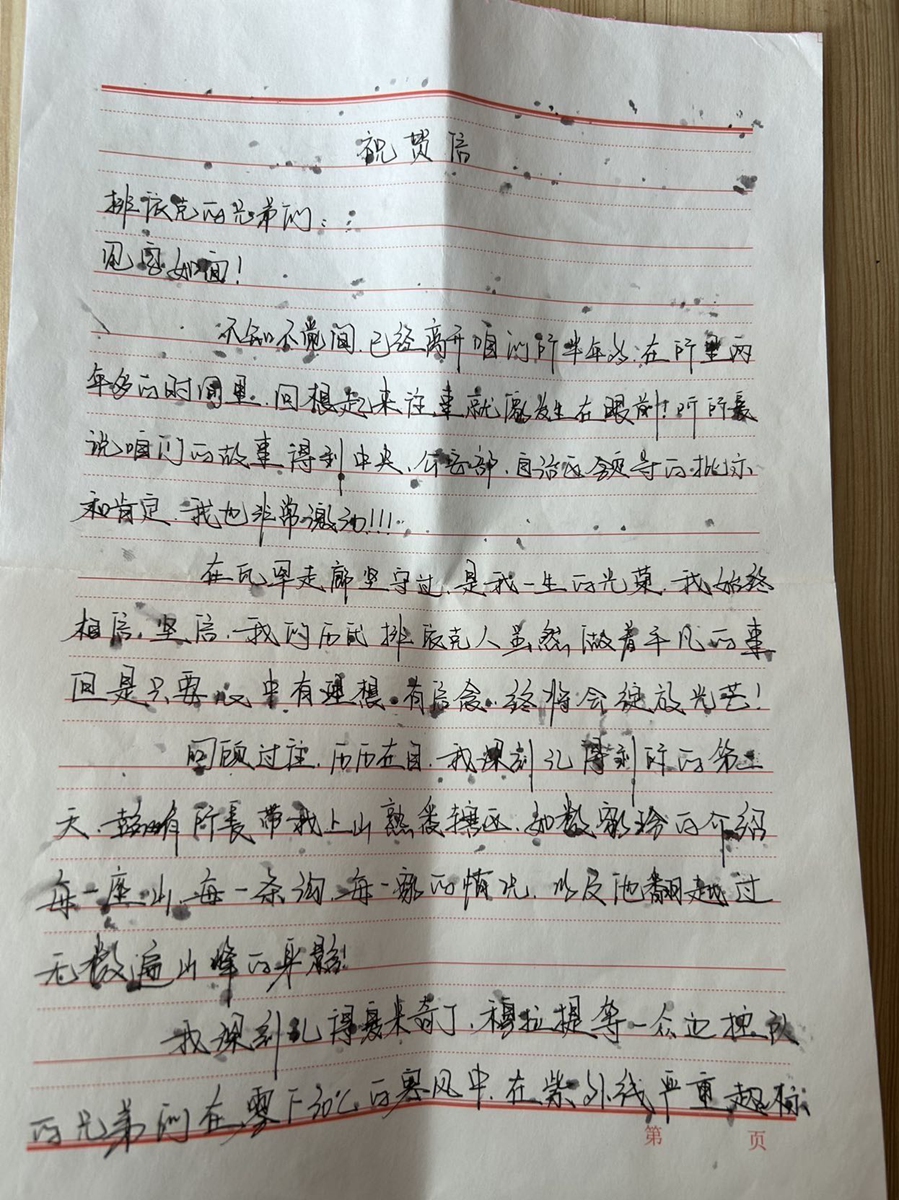 祝贺信
排依克的兄弟们:
见字如面!
不知不觉间,已经离开咱们所半年多,在所里两
年多的时间里,回想起来往事就像发生在眼前!听所长
说咱们的故事得到中央、公安部、自治区领导的批示
和肯定,我也非常激动!!!
在瓦罕走廊坚守过,是我一生的光荣,我始终
相信,坚信,我们历代排依克人虽然做着平凡的事
但是只要心中有理想,有信念,终将会绽放光芒!
回顾过往,历历在目,我深刻记得到所的第一
天,所长带我上山熟悉辖区,如数家珍的介绍
每一座山,每一条沟,每一家的情况,以及他翻越过
无数遍山峰的身影!
我深刻记得夏米奇丁,穆拉提等一众边控队
的兄弟们在零下30℃的寒风中,在紫外线严重超标
第 页